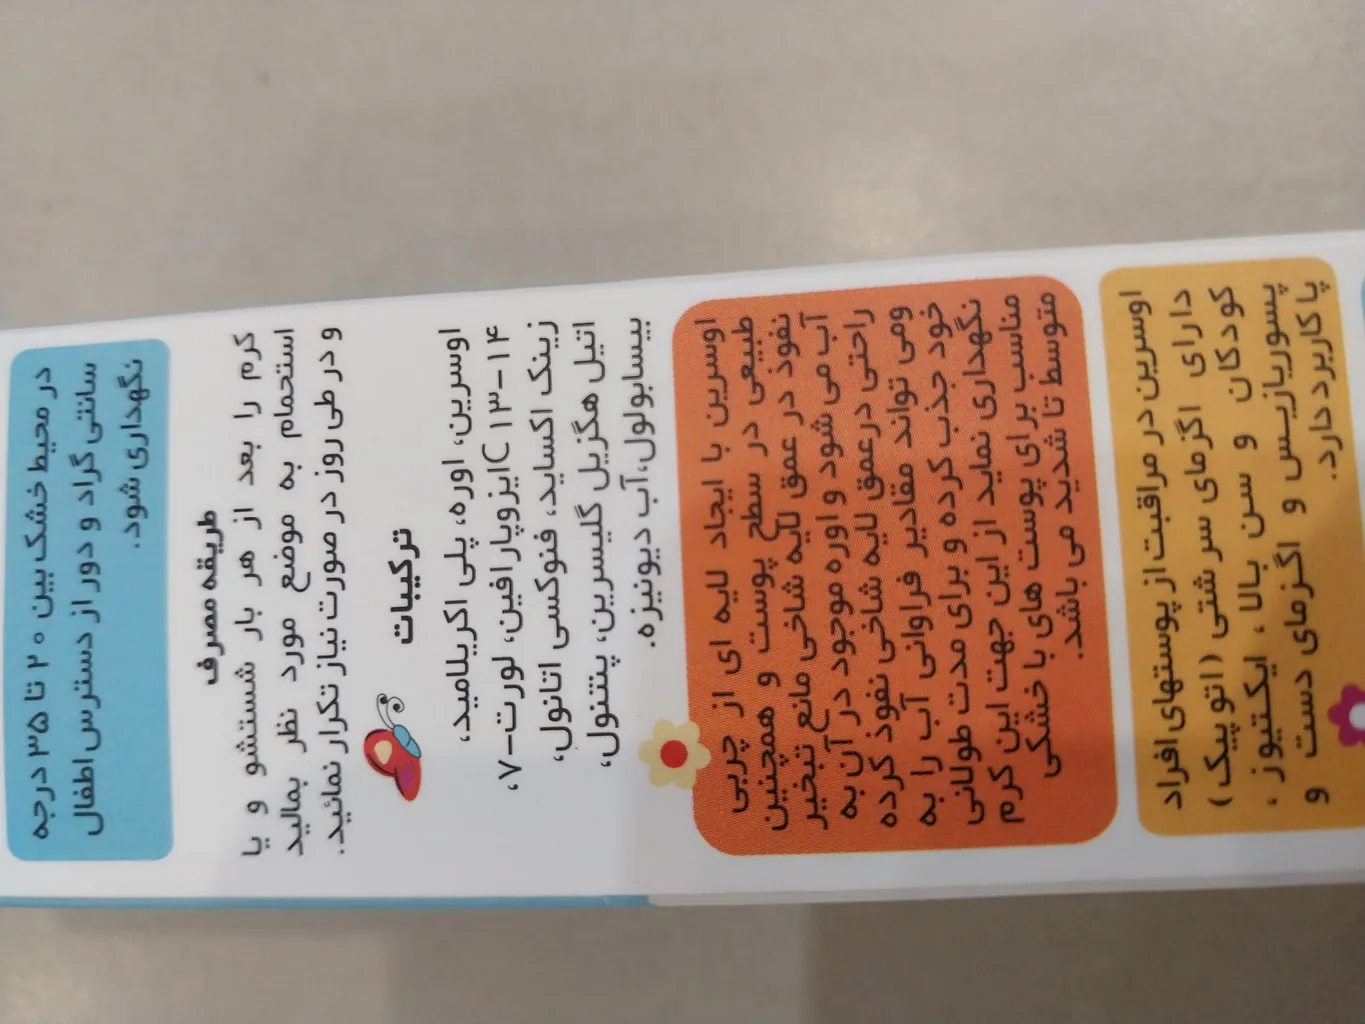 در محیط خشک بین ۲۰ تا ۳۵ درجه
سانتی گراد و دور از دسترس اطفال
نگهداری شود.
طریقه مصرف
کرم را بعد از هر بار شستشو و یا
استحمام به موضع مورد نظر بمالید
و در طی روز در صورت نیاز تکرار نمائید.
ترکیبات
اوسرین، اوره، پلی اکریلامید،
C ۱۳-۱۴ایزوپارافین، لورت-۷،
زینک اکساید، فنوکسی اتانول،
اتیل هگزیل گلیسرین، پنتنول،
بیسابولول،آب دیونیزه.
اوسرین با ایجاد لایه ای از چربی
طبیعی در سطح پوست و همچنین
نفوذ در عمق لایه شاخی مانع تبخیر
آب می شود و اوره موجود در آن به
راحتی درعمق لایه شاخی نفوذ کرده
ومی تواند مقادیر فراوانی آب را به
خود جذب کرده و برای مدت طولانی
نگهداری نماید از این جهت این کرم
مناسب برای پوست های با خشکی
متوسط تا شدید می باشد.
اوسرین در مراقبت از پوستهای افراد
دارای اگزمای سرشتی (اتوپیک)
کودکان و سن بالا ، ایکتیوز ،
پسوریازیس و اگزمای دست و
پا کاربرد دارد.